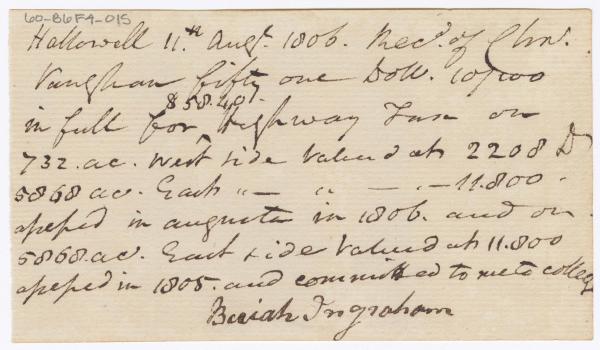 60-B6F4-015
Hallowell 11th Augt. 1806. Recd. of Chas.
Vaughan fifty one Doll. 10/100
$58.40.
in full for ^ Highway Tax on
732. ac. West side Valued at 2208 D
5868 ac. East "— " — "— 11.800.
assessed in augusta in 1806. and on
5868. ac. East side Valued at 11.800
assessed in 1805. and committed to me to collect
Beriah Ingraham